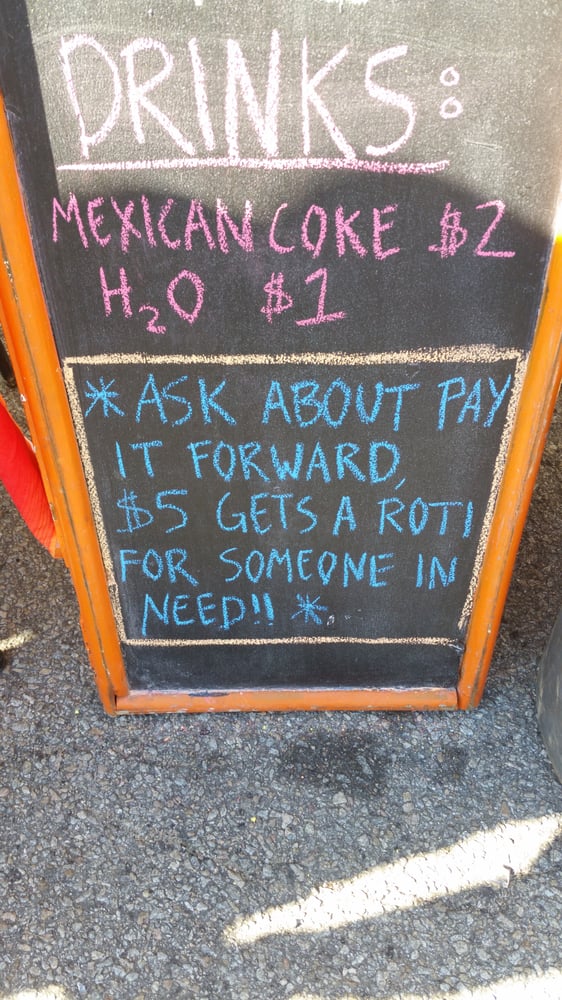 DRINKS:
MEXICAN COKE $2
H₂O $1
*ASK ABOUT PAY
IT FORWARD,
$5 GETS A ROTI
FOR SOMEONE IN
NEED!! *